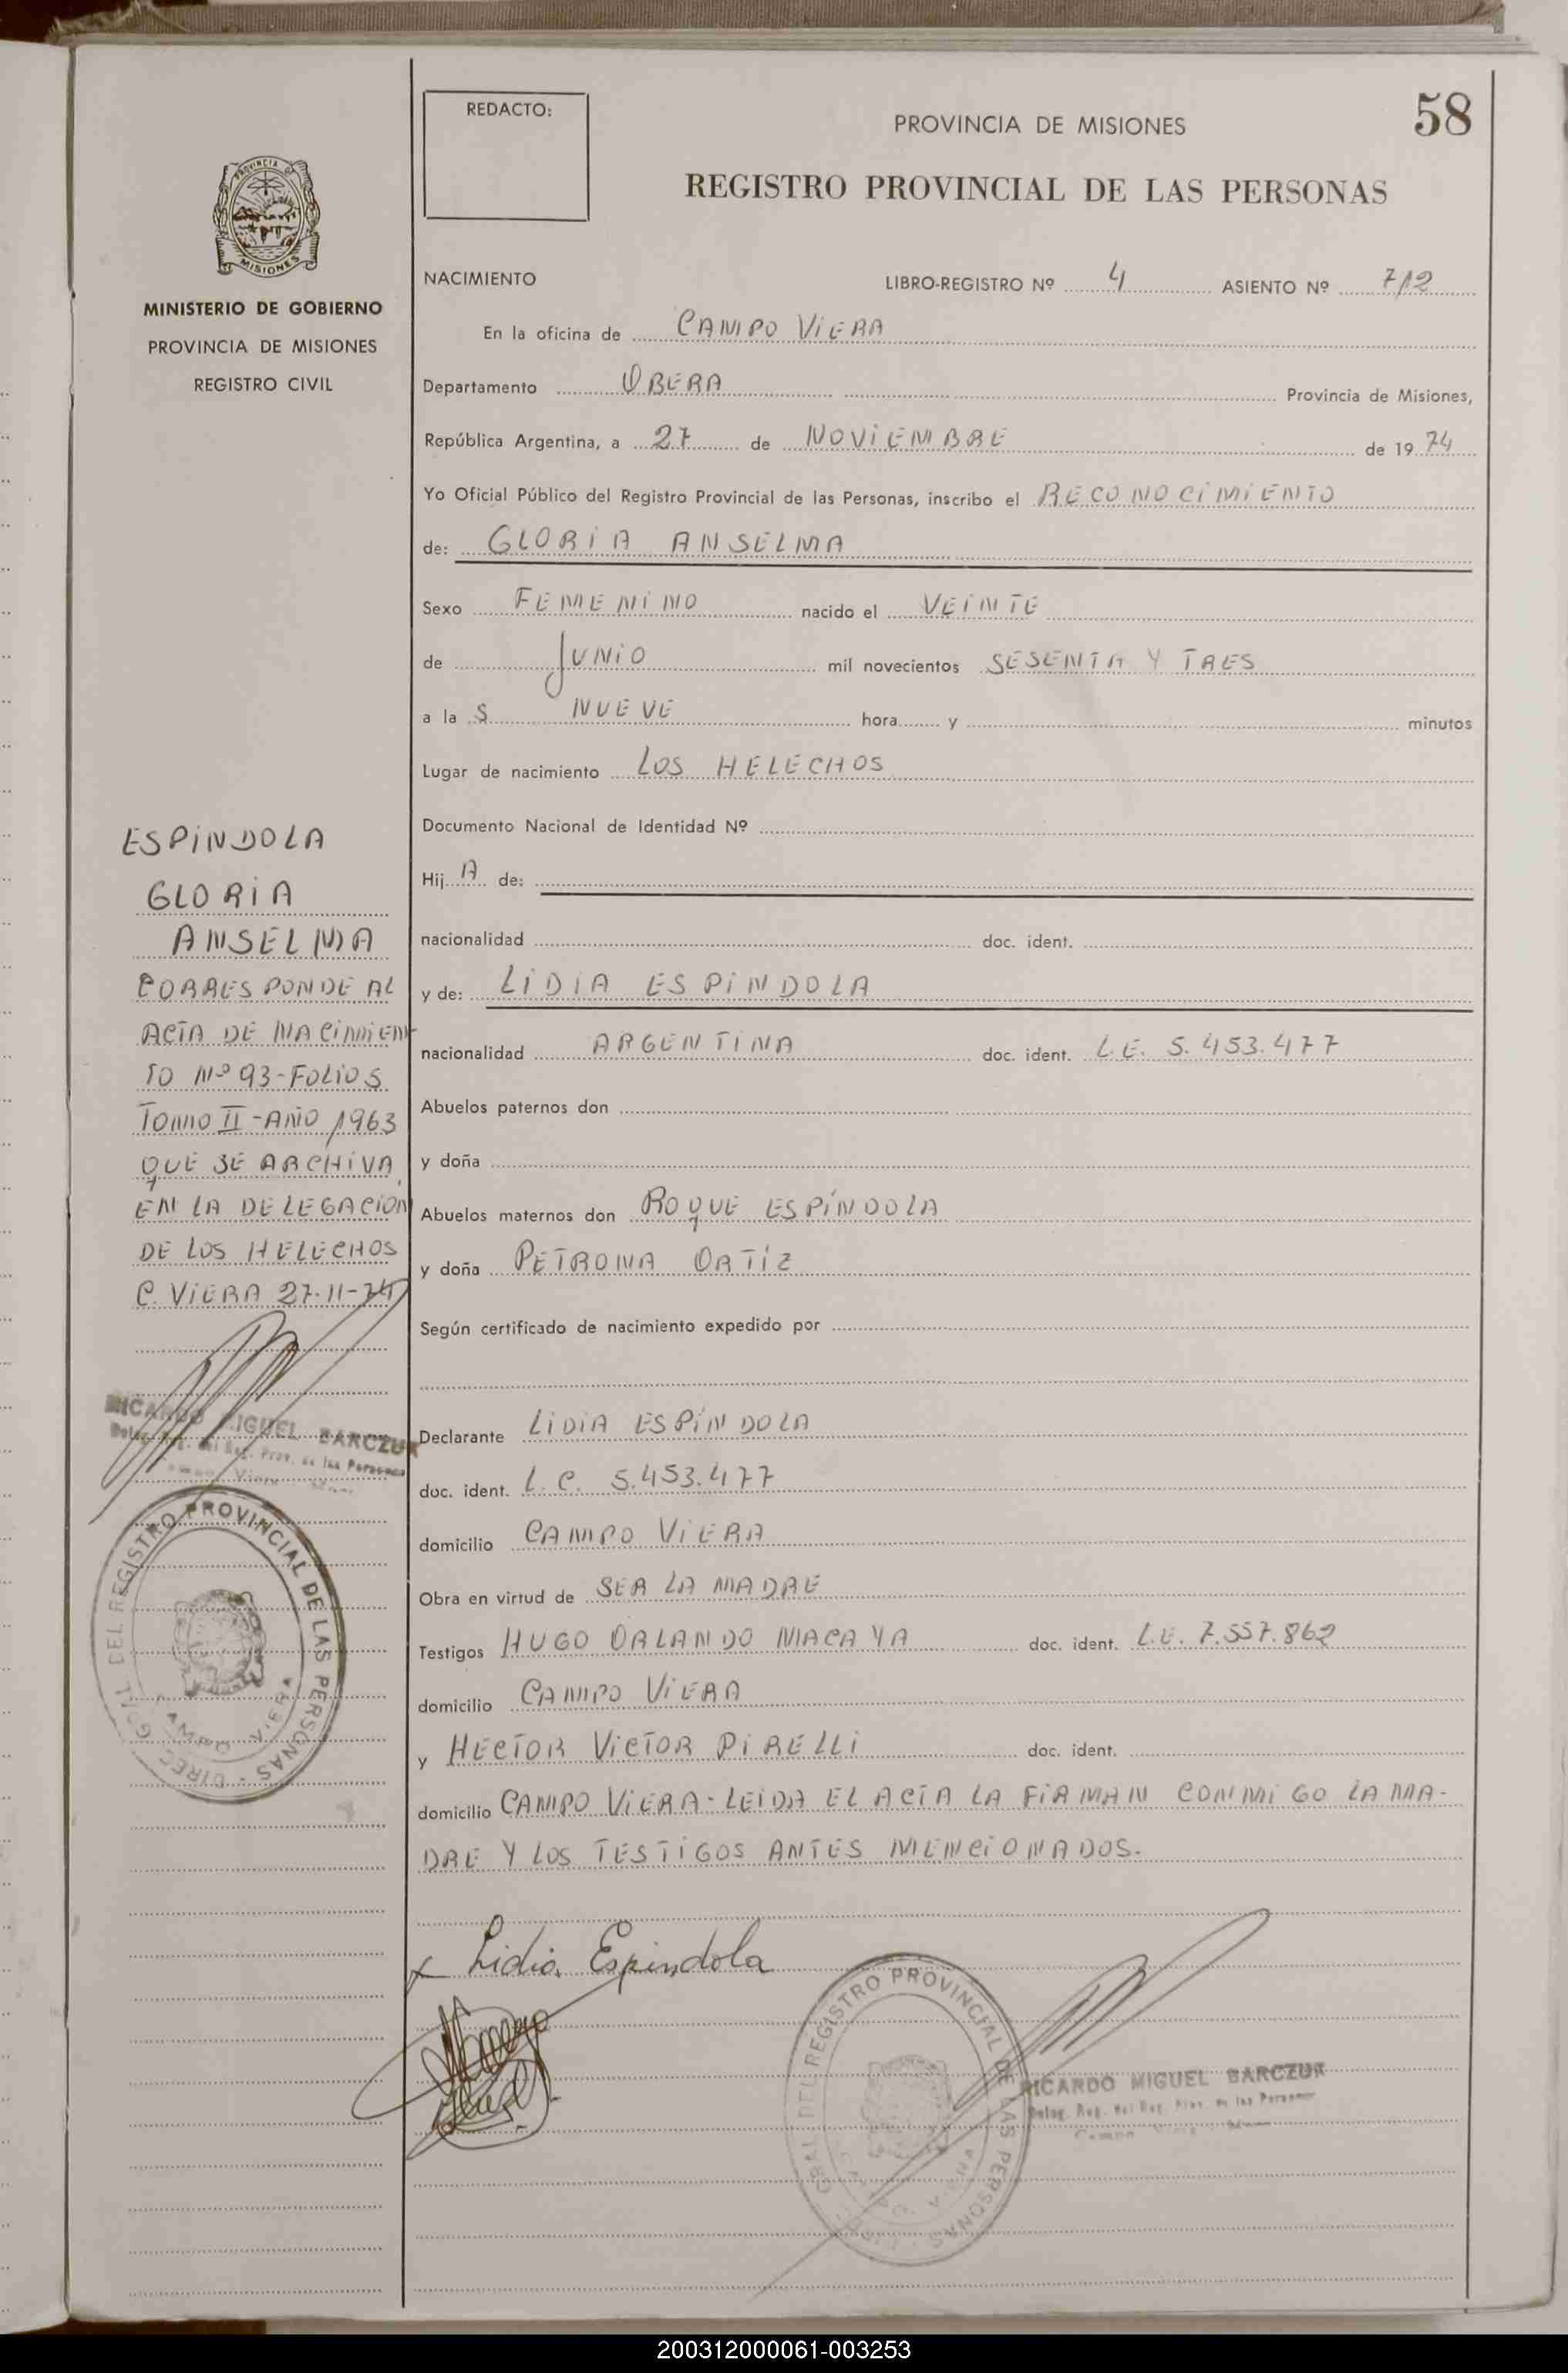 58
REDACTO:
PROVINCIA DE MISIONES
REGISTRO PROVINCIAL DE LAS PERSONAS
PROVINCIA DE
MISIONES
MINISTERIO DE GOBIERNO
PROVINCIA DE MISIONES
REGISTRO CIVIL
NACIMIENTO LIBRO-REGISTRO Nº 4 ASIENTO Nº 712
En la oficina de CAMPO VIERA
Departamento OBERA Provincia de Misiones,
República Argentina, a 27 de NOVIEMBRE de 19 74
Yo Oficial Público del Registro Provincial de las Personas, inscribo el RECONOCIMIENTO
de: GLORIA ANSELMA
Sexo FEMENINO nacido el VEINTE
de JUNIO mil novecientos SESENTA Y TRES
a la S NUEVE hora y minutos
Lugar de nacimiento LOS HELECHOS
Documento Nacional de Identidad Nº
Hij A de:
nacionalidad doc. ident.
y de: LIDIA ESPINDOLA
nacionalidad ARGENTINA doc. ident. L.E. 5.453.477
Abuelos paternos don
y doña
Abuelos maternos don ROQUE ESPÍNDOLA
y doña PETRONA ORTÍZ
Según certificado de nacimiento expedido por
Declarante LIDIA ESPÍNDOLA
doc. ident. L.C. 5.453.477
domicilio CAMPO VIERA
Obra en virtud de SER LA MADRE
Testigos HUGO ORLANDO MACAYA doc. ident. L.E. 7.557.862
domicilio CAMPO VIERA
y HECTOR VICTOR PIRELLI doc. ident.
domicilio CAMPO VIERA-LEIDA EL ACTA LA FIRMAN CONMIGO LA MA-
DRE Y LOS TESTIGOS ANTES MENCIONADOS.
x Lidia Espindola
ESPINDOLA
GLORIA
ANSELMA
CORRESPONDE AL
ACTA DE NACIMIEN
TO Nº 93-FOLIO S
TOMO II-AÑO 1963
QUE SE ARCHIVA
EN LA DELEGACION
DE LOS HELECHOS
C. VIERA 27-11-74
RICARDO MIGUEL BARCZUK
Deleg. Reg. del Reg. Prov. de las Personas
DIREC. GRAL DEL REGISTRO PROVINCIAL DE LAS PERSONAS
CAMPO VIERA
GRAL DEL REGISTRO PROVINCIAL DE LAS PERSONAS
RICARDO MIGUEL BARCZUK
Deleg. Reg. del Reg. Prov. de las Personas
200312000061-003253